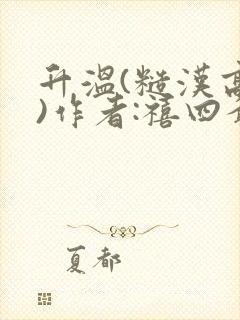 升温(糙汉高
)作者:禧四
夏都